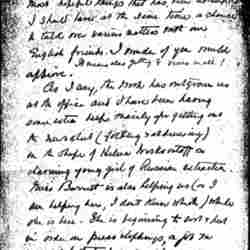 most helpful things that has been
I shall have at the same time a chance
to talk over various matters with our
English friends. I wonder if you would
approve.
It means also getting
As I say, the work has outgrown us
at the office and I have been having
some extra help mainly for getting out
the news sheet (folding & addressing)
in the shape of Helene
charming young girl of Russian extraction.
Miss Burnett is also helping us (or I
am helping her, I don't know which) while
she is here. She is beginning to sort & put
in order our press clippings, a job